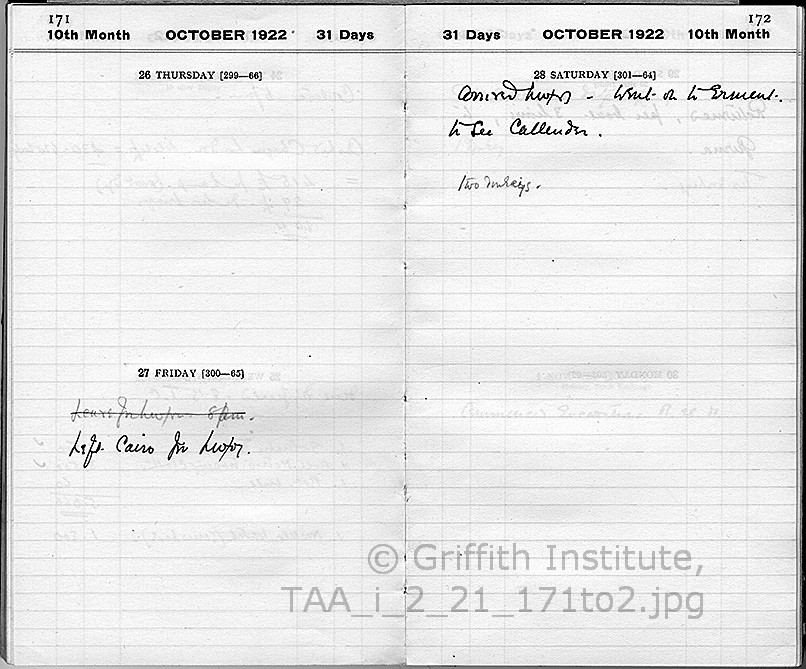 171
10th Month OCTOBER 1922 31 Days
26 THURSDAY [299—66]
27 FRIDAY [300—65]
Leave for Luxor 8 pm.
Left Cairo for Luxor.
172
31 Days OCTOBER 1922 10th Month
28 SATURDAY [301—64]
Arrived Luxor - Went on to Erment.
to see Callender.
two donkeys.
© Griffith Institute,
TAA_i_2_21_171to2.jpg